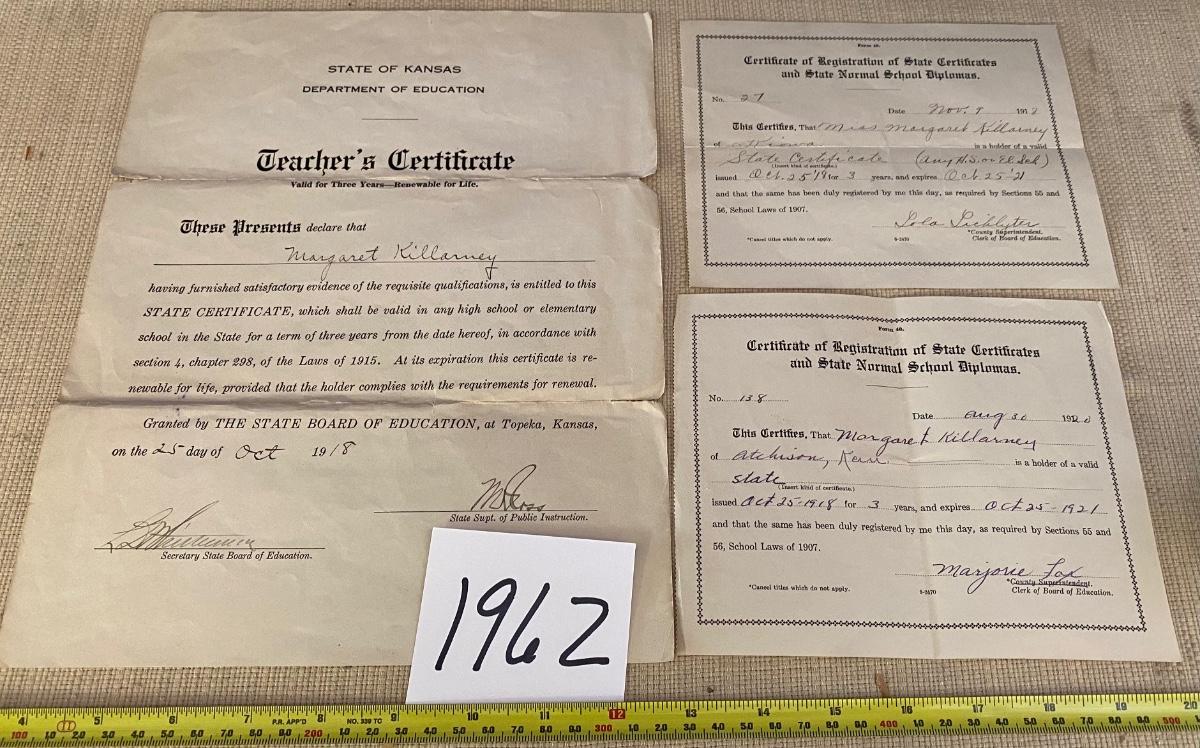 STATE OF KANSAS
DEPARTMENT OF EDUCATION
Teacher's Certificate
Valid for Three Years—Renewable for Life.
These Presents declare that
Margaret Killarney
having furnished satisfactory evidence of the requisite qualifications, is entitled to this
STATE CERTIFICATE, which shall be valid in any high school or elementary
school in the State for a term of three years from the date hereof, in accordance with
section 4, chapter 298, of the Laws of 1915. At its expiration this certificate is re-
newable for life, provided that the holder complies with the requirements for renewal.
Granted by THE STATE BOARD OF EDUCATION, at Topeka, Kansas,
on the 25 day of Oct 1918
W D Ross
State Supt. of Public Instruction.
Secretary State Board of Education.
Form 40.
Certificate of Registration of State Certificates
and State Normal School Diplomas.
No. 27
Date Nov. 9 1918
This Certifies, That Miss Margaret Killarney
of Kiowa is a holder of a valid
State Certificate (Any H.S. or El Sch)
(Insert kind of certificate.)
issued Oct. 25 '18 for 3 years, and expires Oct 25 '21
and that the same has been duly registered by me this day, as required by Sections 55 and
56, School Laws of 1907.
Lola
*County Superintendent.
*Cancel titles which do not apply. 5-2470 Clerk of Board of Education.
Form 40.
Certificate of Registration of State Certificates
and State Normal School Diplomas.
No. 138
Date Aug 30 1920
This Certifies, That Margaret Killarney
of Atchison, Kan is a holder of a valid
state
(Insert kind of certificate.)
issued Oct 25-1918 for 3 years, and expires Oct 25-1921
and that the same has been duly registered by me this day, as required by Sections 55 and
56, School Laws of 1907.
Marjorie Fox
*County Superintendent.
*Cancel titles which do not apply. 5-2470 Clerk of Board of Education.
1962
4 5 6 7 P.R. APP'D 8 NO. 339 TC 9 10 11 12 13 14 15 16 17 18 19 20
100 10 20 30 40 50 60 70 80 90 200 10 20 30 40 50 60 70 80 90 300 10 20 30 40 50 60 70 80 90 400 10 20 30 40 50 60 70 80 90 500